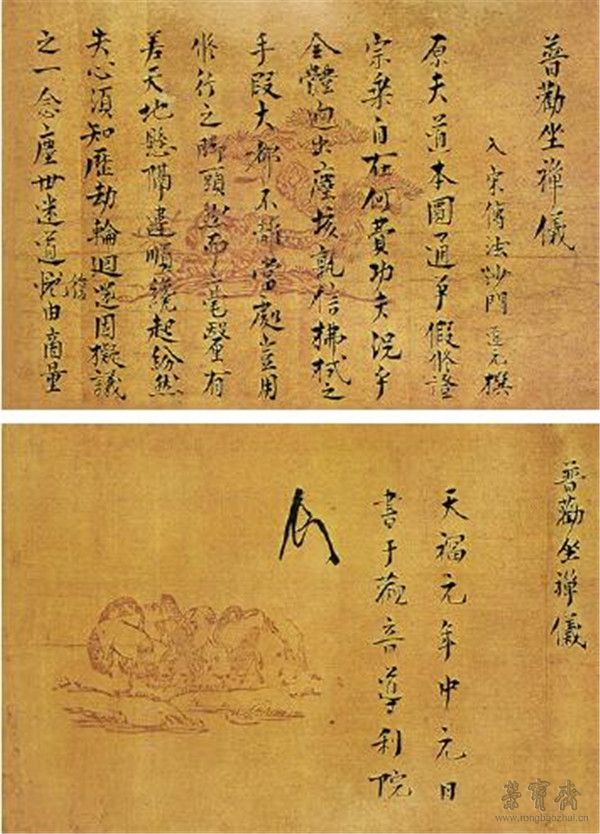 普勸坐禪儀
入宋傳法沙門道元撰
原夫道本圓通爭假修證
宗乘自在何費功夫況乎
全體逈出塵埃孰信拂拭之
手段大都不離當處豈用
修行之脚頭然而毫釐有
差天地懸隔違順纔起紛然
失心須知歷劫輪迴還因擬議
之一念塵世迷道復由商量
普勸坐禪儀
天福元年中元日
書于觀音導利院
榮寶齋
www.rongbaozhai.cn